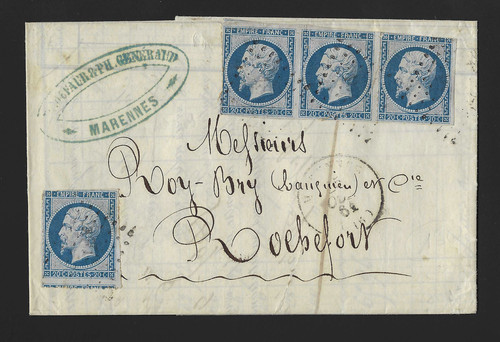 EMPIRE FRANC. EMPIRE FRANC. EMPIRE FRANC.
20 C POSTES 20 C 20 C POSTES 20 C 20 C POSTES 20 C
& PH. GENERAUD
MARENNES
Messieurs
Roy-Bry (banquier) et Cie
Rochefort
EMPIRE FRANC.
20 C POSTES 20 C